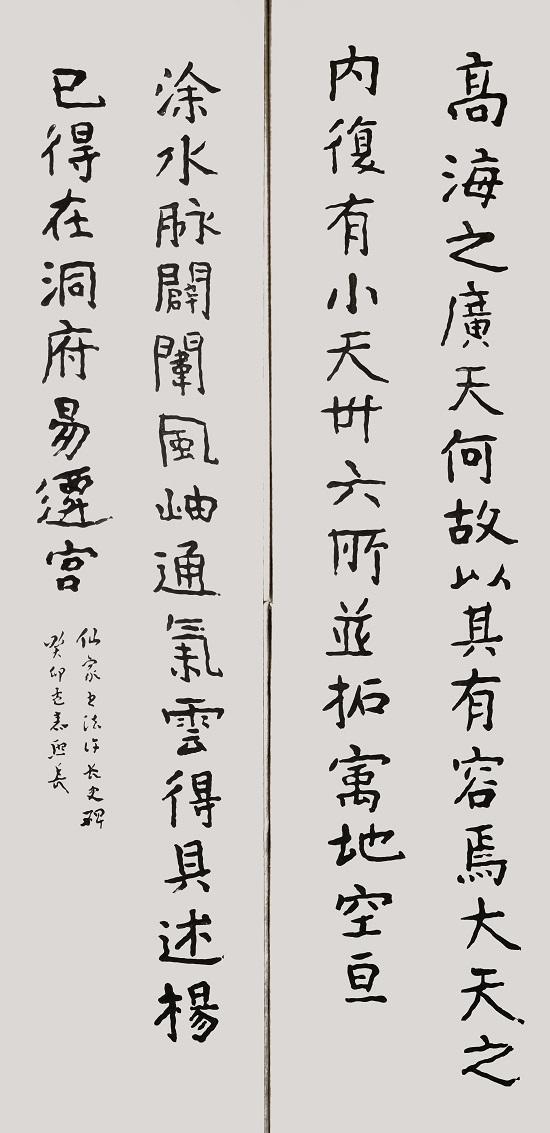 髙海之廣天何故以其有容焉大天之
内復有小天卅六所並拓寓地空亘
涂水脉闢闈風岫通氣雲得具述楊
已得在洞府易遷宮
仙家书法许长史碑
癸卯熙長